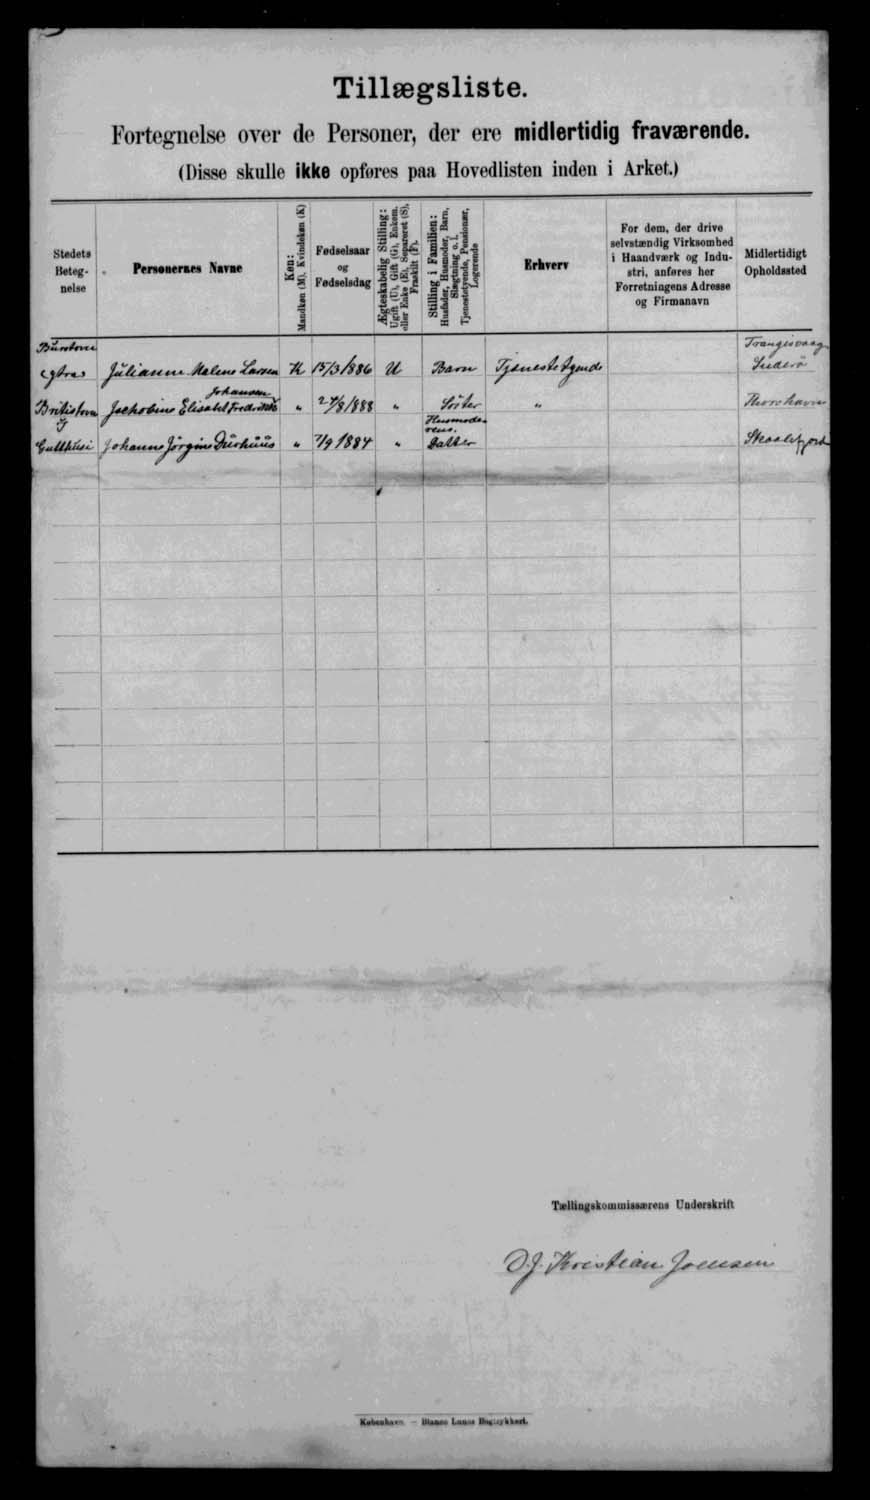 Tillægsliste.
Fortegnelse over de Personer, der ere midlertidig fraværende.
(Disse skulle ikke opføres paa Hovedlisten inden i Arket.)
Stedets Betegnelse
Personernes Navne
Køn: Mandkøn (M). Kvindekøn (K)
Fødselsaar og Fødselsdag
Ægteskabelig Stilling: Ugift (U), Gift (G), Enkemand eller Enke (E), Separeret (S), Fraskilt (F).
Stilling i Familien: Husfader, Husmoder, Barn, Slægtning o. l. Tjenestetyende, Pensionær, Logerende
Erhverv
For dem, der drive selvstændig Virksomhed i Haandværk og Industri, anføres her Forretningens Adresse og Firmanavn
Midlertidigt Opholdssted
Julianne Malene Larsen K 15/3 1886 U Barn Tjenestetyende Trangisvaag Suderö
Jackobine Elisabet Fredrikke Johansen " 24/8 1888 " Söster " Thorshavn
Gutthusi Johanne Jörgine Durhuus " 7/9 1884 " Husmoderens Datter Skaalefjord
Tællingskommissærens Underskrift
D. J. Kristian Joensen
København. — Bianco Lunos Bogtrykkeri.